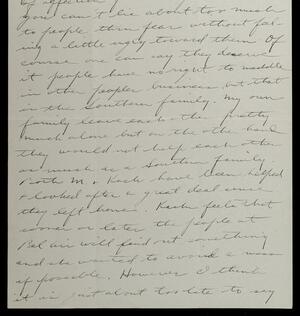 you can't lie about too much
to people thru fear without fal-
ing a little ugly toward them. Of
course one can say they deserve
it people have no right to meddle
in other peoples business, but that
is the Southern family. My own
family leave each other pretty
much alone but on the other hand
they would not help each other
as much as a Southern family
Both M. & have been helped
& looked after a great deal since
they left home. feels that
sooner or later the people at
Bel air will find out something
and she wanted to avoid a mess
if possible. However I think
it is just about too late to say